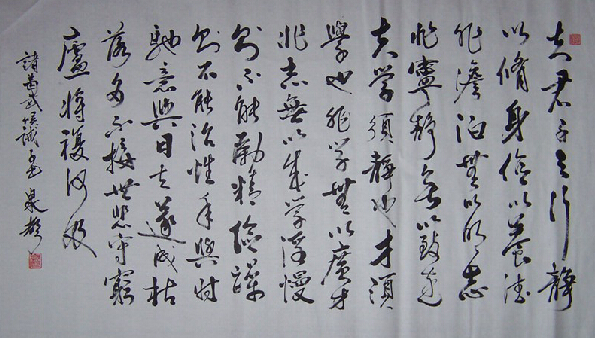 夫君子之行靜
以脩身儉以養德
非澹泊無以明志
非寧靜無以致遠
夫學須靜也才須
學也非學無以廣才
非志無以成學淫慢
則不能勵精險躁
則不能治性年與時
馳意與日去遂成枯
落多不接世悲守窮
廬將復何及
諸葛武侯誡子書